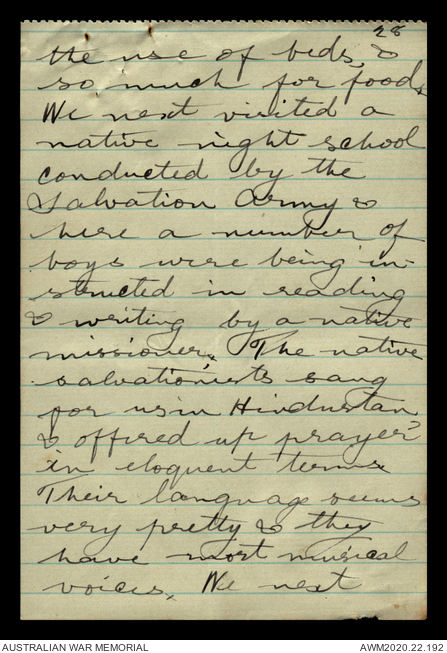 28
the use of beds, &
so much for food.
We next visited a
native night school
conducted by the
Salvation Army &
here a number of
boys were being in-
structed in reading
& writing by a native
missioner. The native
salvationists sang
for us in Hindustan
& offered up prayer
in eloquent terms.
Their language seems
very pretty & they
have most musical
voices. We next
AUSTRALIAN WAR MEMORIAL
AWM2020.22.192